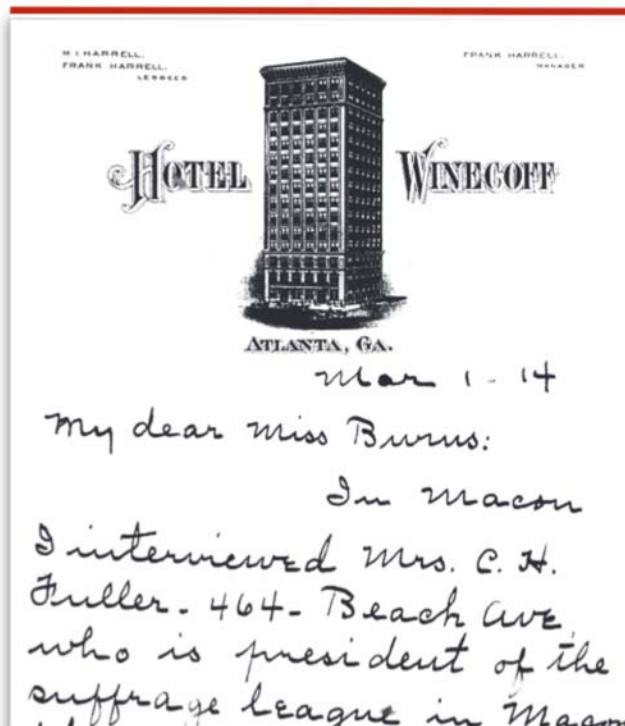 M. I. HARRELL.
FRANK HARRELL.
LESSEES
FRANK HARRELL.
MANAGER
HOTEL WINECOFF
ATLANTA, GA.
Mar 1 - 14
My dear Miss Burns:
In Macon
I interviewed Mrs. C. H.
Fuller - 464 - Beach Ave
who is president of the
suffrage league in Macon